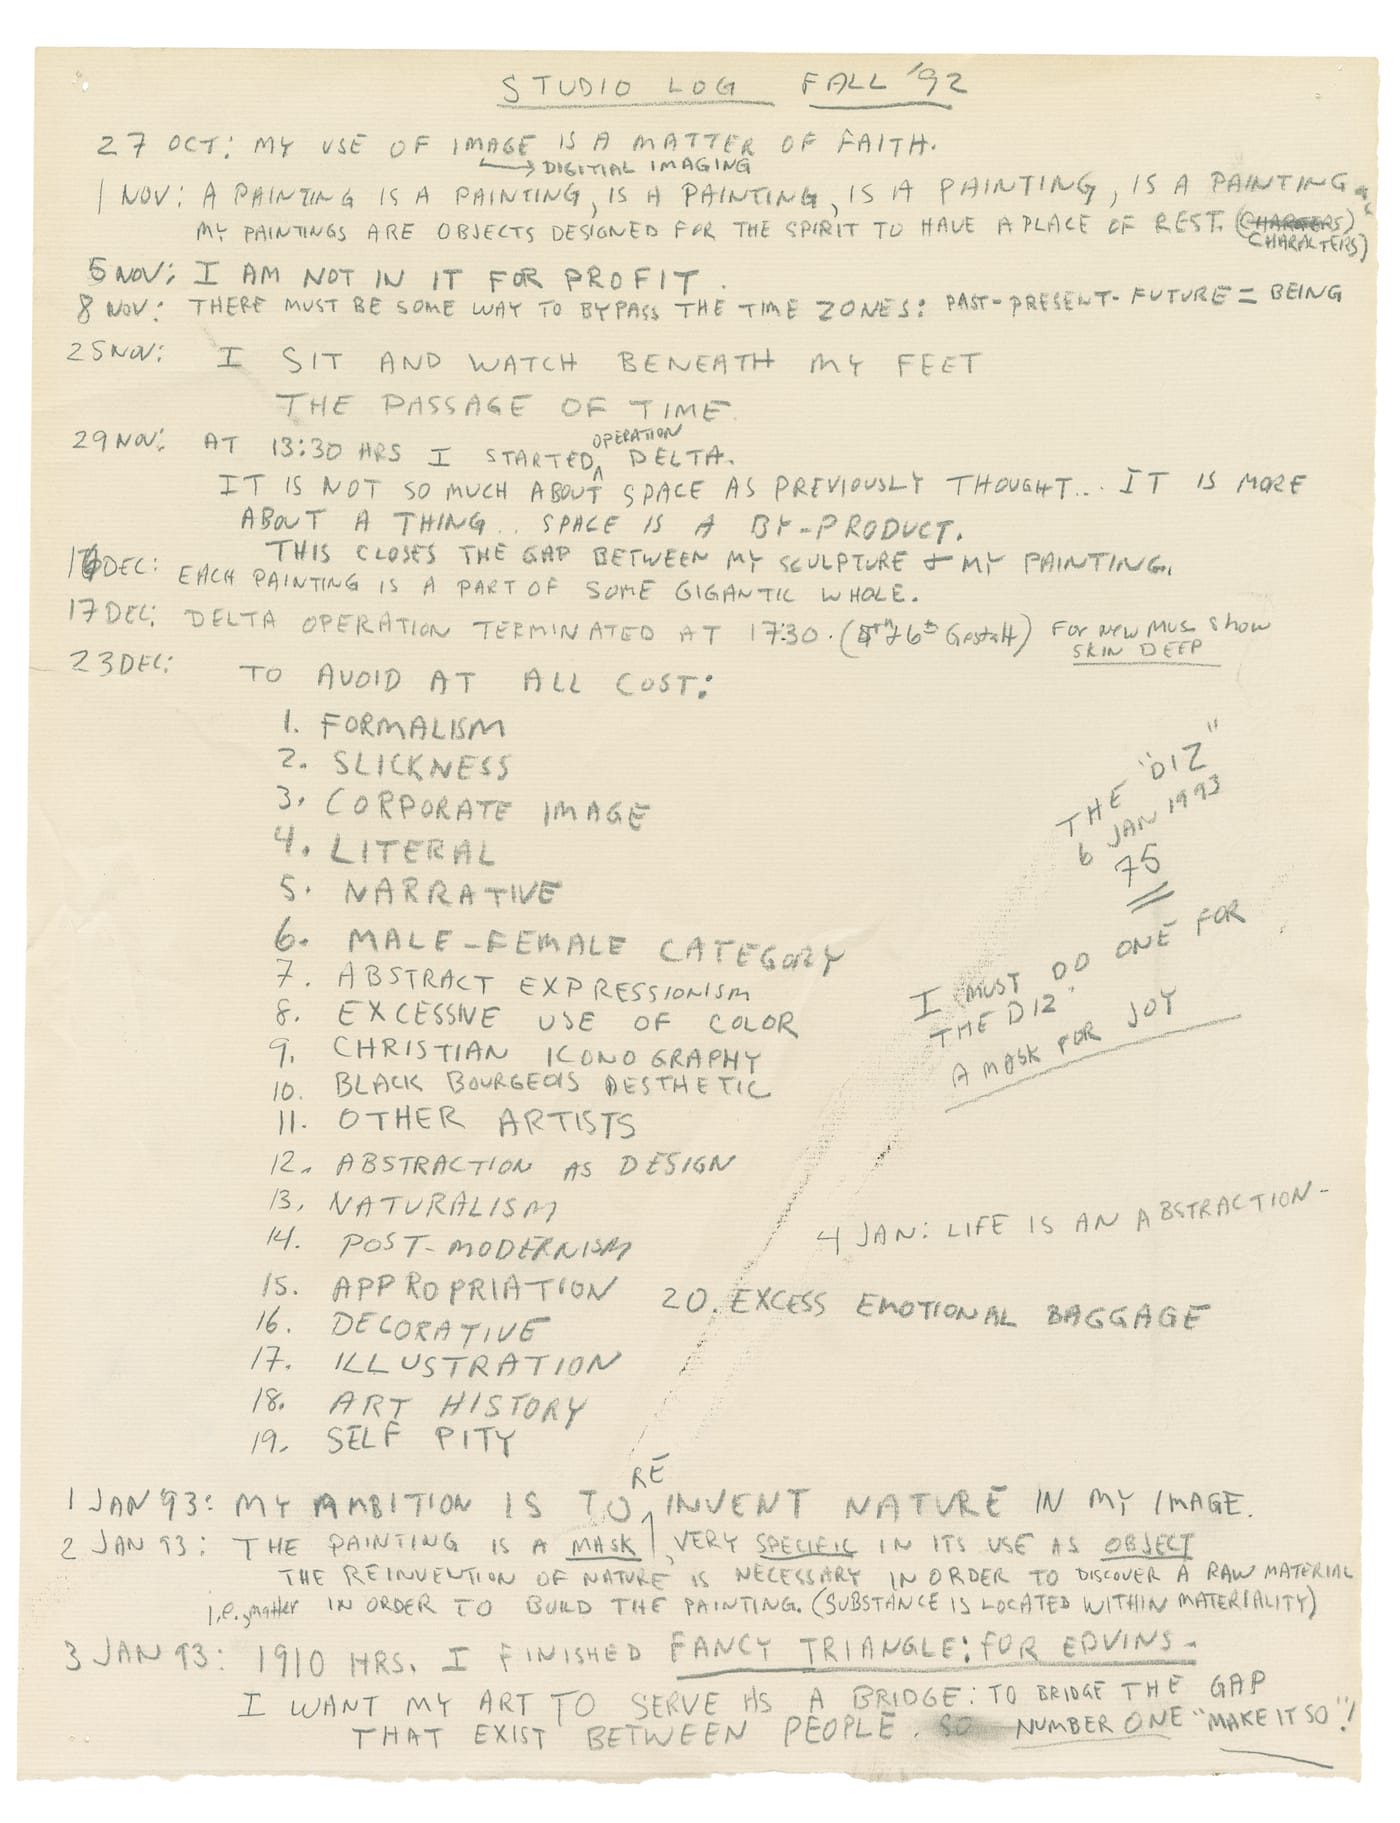 STUDIO LOG FALL '92
27 OCT: MY USE OF IMAGE IS A MATTER OF FAITH.
→ DIGITIAL IMAGING
1 NOV: A PAINTING IS A PAINTING, IS A PAINTING, IS A PAINTING, IS A PAINTING.
MY PAINTINGS ARE OBJECTS DESIGNED FOR THE SPIRIT TO HAVE A PLACE OF REST. (CHARTERS)
CHARACTERS)
5 NOV: I AM NOT IN IT FOR PROFIT.
8 NOV: THERE MUST BE SOME WAY TO BYPASS THE TIME ZONES: PAST-PRESENT-FUTURE = BEING
25 NOV: I SIT AND WATCH BENEATH MY FEET
THE PASSAGE OF TIME
OPERATION
29 NOV: AT 13:30 HRS I STARTED DELTA.
IT IS NOT SO MUCH ABOUT SPACE AS PREVIOUSLY THOUGHT... IT IS MORE
ABOUT A THING.. SPACE IS A BY-PRODUCT.
THIS CLOSES THE GAP BETWEEN MY SCULPTURE & MY PAINTING.
16 DEC: EACH PAINTING IS A PART OF SOME GIGANTIC WHOLE.
17 DEC: DELTA OPERATION TERMINATED AT 17:30. ( 6th Gestalt) For New Mus Show
SKIN DEEP
23 DEC: TO AVOID AT ALL COST:
1. FORMALISM
2. SLICKNESS
3. CORPORATE IMAGE
4. LITERAL
5. NARRATIVE
6. MALE-FEMALE CATEGORY
7. ABSTRACT EXPRESSIONISM
8. EXCESSIVE USE OF COLOR
9. CHRISTIAN ICONOGRAPHY
10. BLACK BOURGEOIS AESTHETIC
11. OTHER ARTISTS
12. ABSTRACTION AS DESIGN
13. NATURALISM
14. POST-MODERNISM
15. APPROPRIATION
16. DECORATIVE
17. ILLUSTRATION
18. ART HISTORY
19. SELF PITY
20. EXCESS EMOTIONAL BAGGAGE
THE "DIZ"
6 JAN 1993
75
I MUST DO ONE FOR
THE DIZ.
A MASK FOR JOY
4 JAN: LIFE IS AN ABSTRACTION-
RE
1 JAN '93: MY AMBITION IS TO INVENT NATURE IN MY IMAGE.
2 JAN 93: THE PAINTING IS A MASK, VERY SPECIFIC IN ITS USE AS OBJECT
THE REINVENTION OF NATURE IS NECESSARY IN ORDER TO DISCOVER A RAW MATERIAL
i.e., matter IN ORDER TO BUILD THE PAINTING. (SUBSTANCE IS LOCATED WITHIN MATERIALITY)
3 JAN 93: 1910 HRS. I FINISHED FANCY TRIANGLE: FOR EDVINS-
I WANT MY ART TO SERVE AS A BRIDGE: TO BRIDGE THE GAP
THAT EXIST BETWEEN PEOPLE. SO NUMBER ONE "MAKE IT SO"!